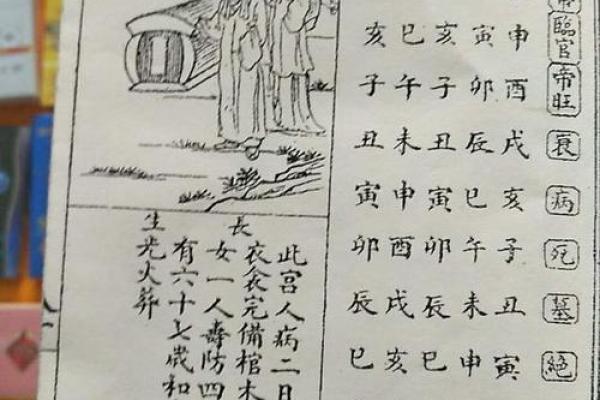 臨官帝旺衰病死墓絕
申酉戌亥子丑寅
寅卯辰巳午未申
亥子丑寅卯辰巳
巳午未申酉戌亥
亥子丑寅卯辰巳
長生
此宮人病二日
衣衾完備棺木
女一人壽防四
有六十七歲和
光火葬